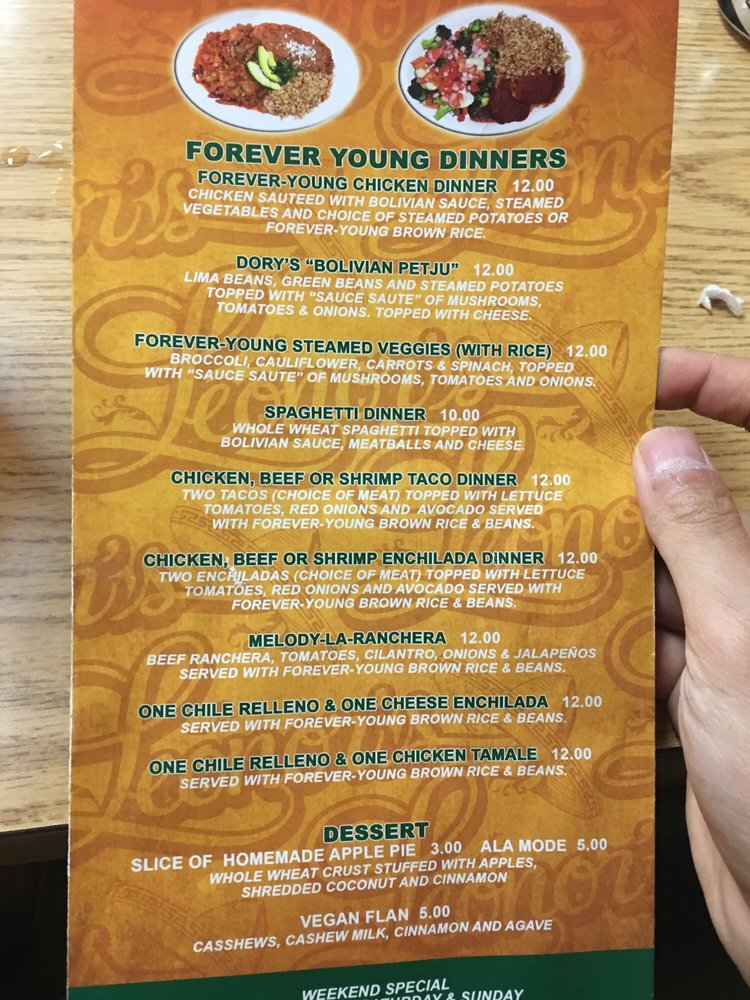 FOREVER YOUNG DINNERS
FOREVER-YOUNG CHICKEN DINNER 12.00
CHICKEN SAUTEED WITH BOLIVIAN SAUCE, STEAMED
VEGETABLES AND CHOICE OF STEAMED POTATOES OR
FOREVER-YOUNG BROWN RICE.
DORY'S "BOLIVIAN PETJU" 12.00
LIMA BEANS, GREEN BEANS AND STEAMED POTATOES
TOPPED WITH "SAUCE SAUTE" OF MUSHROOMS,
TOMATOES & ONIONS. TOPPED WITH CHEESE.
FOREVER-YOUNG STEAMED VEGGIES (WITH RICE) 12.00
BROCCOLI, CAULIFLOWER, CARROTS & SPINACH, TOPPED
WITH "SAUCE SAUTE" OF MUSHROOMS, TOMATOES AND ONIONS.
SPAGHETTI DINNER 10.00
WHOLE WHEAT SPAGHETTI TOPPED WITH
BOLIVIAN SAUCE, MEATBALLS AND CHEESE.
CHICKEN, BEEF OR SHRIMP TACO DINNER 12.00
TWO TACOS (CHOICE OF MEAT) TOPPED WITH LETTUCE
TOMATOES, RED ONIONS AND AVOCADO SERVED
WITH FOREVER-YOUNG BROWN RICE & BEANS.
CHICKEN, BEEF OR SHRIMP ENCHILADA DINNER 12.00
TWO ENCHILADAS (CHOICE OF MEAT) TOPPED WITH LETTUCE
TOMATOES, RED ONIONS AND AVOCADO SERVED WITH
FOREVER-YOUNG BROWN RICE & BEANS.
MELODY-LA-RANCHERA 12.00
BEEF RANCHERA, TOMATOES, CILANTRO, ONIONS & JALAPEÑOS
SERVED WITH FOREVER-YOUNG BROWN RICE & BEANS.
ONE CHILE RELLENO & ONE CHEESE ENCHILADA 12.00
SERVED WITH FOREVER-YOUNG BROWN RICE & BEANS.
ONE CHILE RELLENO & ONE CHICKEN TAMALE 12.00
SERVED WITH FOREVER-YOUNG BROWN RICE & BEANS.
DESSERT
SLICE OF HOMEMADE APPLE PIE 3.00 ALA MODE 5.00
WHOLE WHEAT CRUST STUFFED WITH APPLES,
SHREDDED COCONUT AND CINNAMON
VEGAN FLAN 5.00
CASSHEWS, CASHEW MILK, CINNAMON AND AGAVE
WEEKEND SPECIAL
SATURDAY & SUNDAY